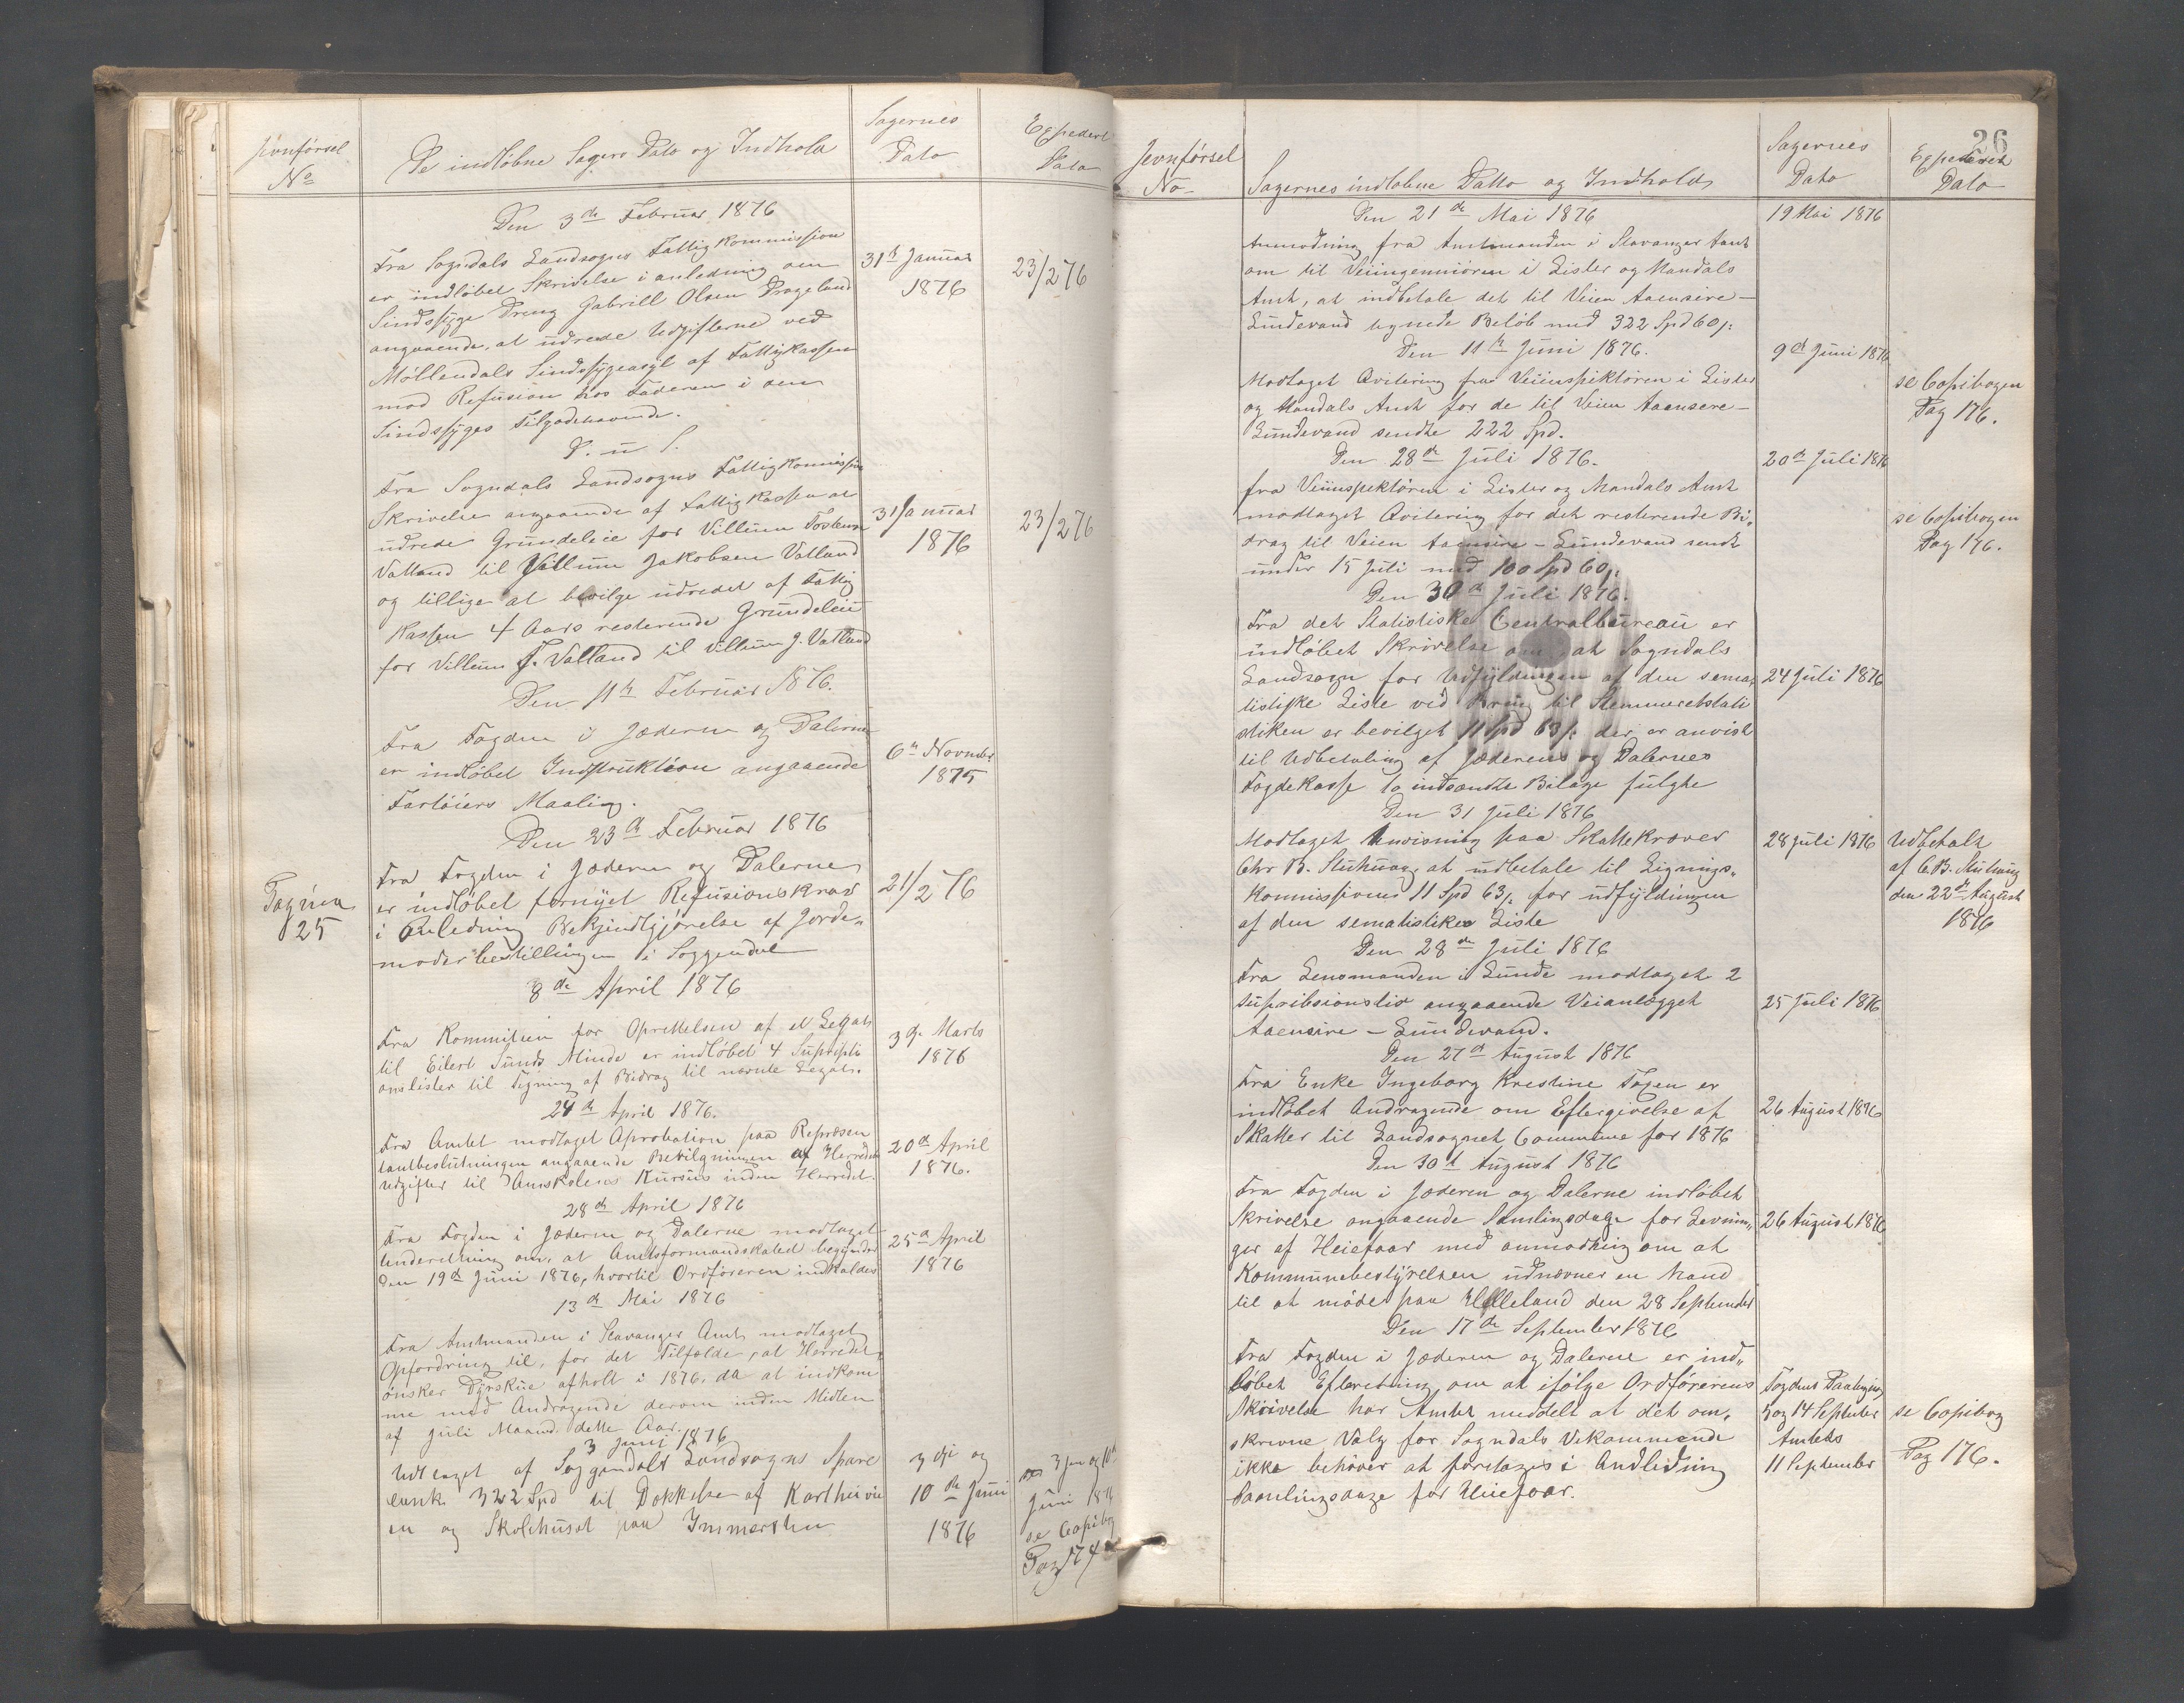 Jevnførsel
No
De indløbne Sagers Dato og Indhold
Sagernes
Dato
Expedert
Dato
Den 3de Februar 1876
Fra Sogndals Landsogns Fattigkommission
er indløbet Skrivelse i anledning om
Sindssyge Dreng Gabrill Olsen Drageland
angaaende, at udrede Udgifterne ved
Møllendals Sindssygeasyl af Fattigkassen
mod Refusion hos Faderen i den
Sindssyges Tilgodehavende.
31te Januar
1876
23/2 76
D. u S.
Fra Sogndals Landsogns Fattigkommission
Skrivelse angaaende af Fattigkassen at
udrede Grundeleie for Villum Tostensen
Vatland til Villum Jakobsen Vatland
og tillige at bevilge udredet af Fattig
kassen 4 Aars resterende Grundeleie
for Villum T. Vatland til Villum J. Vatland
31 Januar
1876
23/2 76
Den 11te Februar 1876.
Fra Fogden i Jæderen og Dalerne
er indløbet Instruktion angaaende
Fartøiers Maaling.
6te Novmber
1875
Den 23de Februar 1876
Pagina
25
Fra Fogden i Jæderen og Dalerne
er indløbet fornyet Refusionskrav
i Anledning Bekjendtgjørelse af Jorde„
moderbestillingen i Soggendal
21/2 76
8de April 1876
Fra Kommiteen for Oprettelsen af et Legat
til Eilert Sunds Minde er indløbet 4 Suskripti
onslister til Tegning af Bidrag til nævnte Legat.
3de Marts
1876
24de April 1876.
Fra Amtet modtaget Aprobation paa Repræsen
tantbeslutningen angaaende Bevilgningen af Herredets
udgifter til Amskolens Kursus inden Herredet.
20de April
1876.
28de April 1876
Fra Fogden i Jæderen og Dalerne modtaget
Underretning om, at Amtsformandskabet begynder
den 19de Juni 1876, hvortil Ordføreren indkaldes
25de April
1876
13de Mai 1876
Fra Amtmanden i Stavanger Amt modtaget
Opfordring til, for det Tilfælde, at Herredet
ønsker Dyrskue afholt i 1876, da at indkom
me med Andragende derom inden Midten
af Juli Maaned dette Aar.
3 Juni 1876
Udtaget af Soggendals Landsogns Spare
bank 322 Spd til Dækkelse af
en og Skolehuset paa Immerstein
3die og
10de Juni
1876
3 Jun og 10de
Juni 1876
se Copibog
Pag 174
26
Jevnførsel
No
Sagernes indløbne Datto og Indhold
Sagernes
Dato
Expederet
Dato
Den 21de Mai 1876
19 Mai 1876
Anmodning fra Amtmanden i Stavanger Amt
om til Veiingenniøren i Lister og Mandals
Amt, at indbetale det til Veien Aaensire—
Lundevand lignede Beløb med 322 Spd 60 s.
Den 11te Juni 1876.
9de Juni 1876
Modtaget Qvitering fra Veiinspektøren i Lister
og Mandals Amt for de til Veien Aaensire—
Lundevand sendte 222 Spd.
se Copibogen
Pag 176.
Den 28de Juli 1876.
20de Juli 1876
fra Veiinspektøren i Lister og Mandals Amt
modtaget Qvitering for det resterende Bi„
drag til Veien Aaensire – Lundevand sendt
under 15 Juli med 100 Spd 60 s.
se Copibogen
Pag 176.
Den 30de Juli 1876.
Fra det Statistiske Centralbureau er
indløbet Skrivelse om, at Sogndals
Landsogn for Udfyldningen af den sema„
tistiske Liste ved Brug til Stemmeretstati
stiken er bevilget 11 Spd 63 s. der er anvist
til Udbetaling af Jæderens og Dalernes
Fogdekasse to indsendte Bilage fulgte
24 Juli 1876
Den 31 Juli 1876
Modtaget Anvisning paa Skattekræver
Chr B. Stuhaug, at udbetale til Lignings„
kommissionen 11 Spd 63 s. for udfyldningen
af den sematistiske Liste
28 Juli 1876
Udbetalt
af C.B. Stuhaug
den 22de August
1876
Den 28de Juli 1876
Fra Lensmanden i Lunde modtaget 2
supribsionslist angaaende Veianlægget
Aaensire – Lundevand.
25 Juli 1876
Den 27de August 1876
Fra Enke Ingeborg Krestine Fogen er
indløbet Andragende om Eftergivelse af
Skatter til Landsognet Commune for 1876
26 August 1876
Den 30te August 1876
Fra Fogden i Jæderen og Dalerne indløbet
Skrivelse angaaende Samlingsdage for Levnin„
ger af Heiefaar med anmodning om at
Kommunebestyrelsen udnævner en Mand
til at møde paa Helleland den 28 September
26 August 1876
Den 17de September 1876
Fra Fogden i Jæderen og Dalerne er ind„
løbet Efterretning om at ifølge Ordførerens
Skrivelse har Amtet meddelt at det om„
skrevne Valg for Sogndals Vekommende
ikke behøver at foretages i Andledning
Samlingsdage for Heiefaar.
Fogdens Paategning
5 og 14 September
Amtets
11 September
se Copibog
Pag 176.